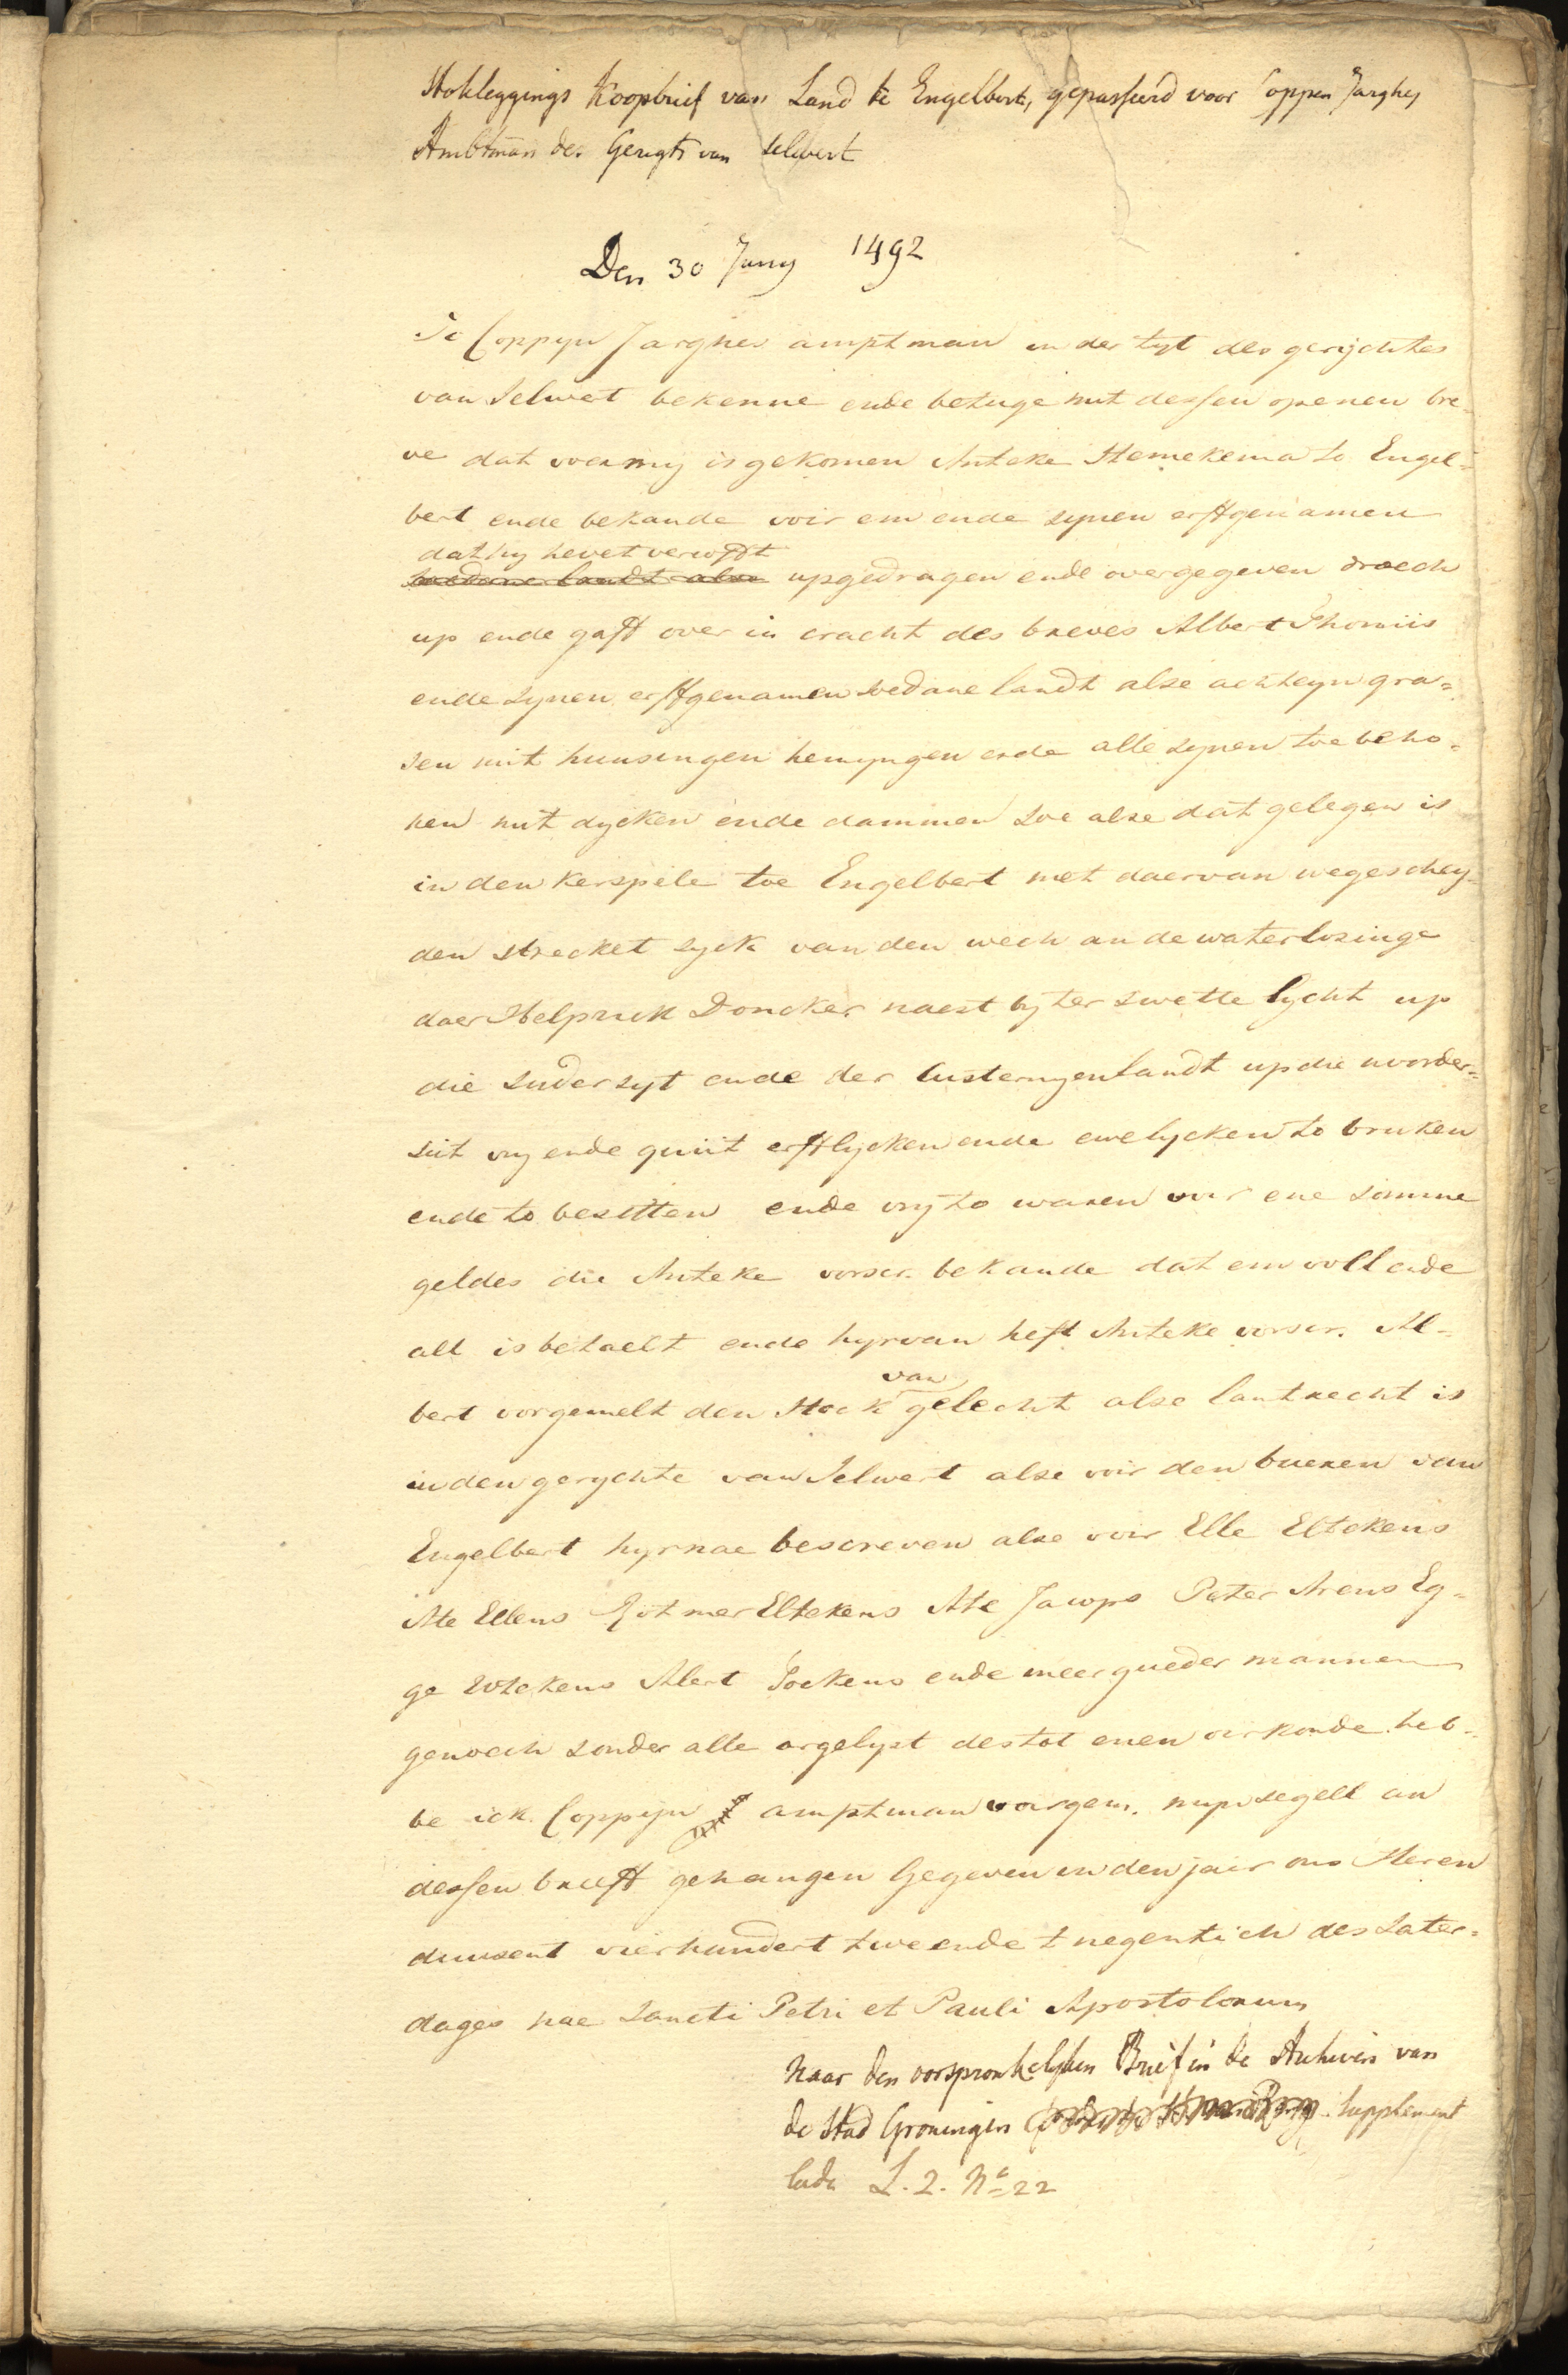 Stokleggings Koopbrief van Land te Engelbert, gepasseerd voor Coppen Jarghes
Ambtman des Gerigts van Selwert
Den 30 Juny 1492
Ic Coppyn Jarghes amptman in der tyt des gerychtes
van Selwert bekenne ende betuge mit dessen openen bre-
ve dat voer my is gekomen Anteke Hemekema to Engel-
bert ende bekande voir em ende synen erffgenamen
dat hy hevet verkofft
soedane landt alse upgedragen ende overgegeven droech
up ende gaff over in cracht des breves Albert Thomiis
ende synen erffgenamen soedane landt alse achteyn gra-
sen mit huusingen hemyngen ende alle synen toebeho-
ren mit dycken ende dammen soe alse dat gelegen is
in den kerspele toe Engelbert met daervan wegeschey-
den strecket syck van den wech an de waterlosinge
daer Helprick Doncker naest by ter swette lycht up
die suder syt ende der susternyen landt up die noorder-
siit vry ende quiit erfflycken ende ewelycken to bruken
ende to besitten ende vry to waren voir ene somme
geldes die Anteke vorscr. bekande dat em voll ende
all is betaelt ende hyrvan heft Anteke vorscr. Al-
van
bert vorgemelt den stock gelecht alse lantrecht is
in den gerychte van Selwert alse voir den bueren van
Engelbert hyrnae bescreven alse voir Elle Eltekens
Ate Ellens Eltekens Ate Jacops Peter Arens Eg-
ge Alert Tockens ende meer gueder mannen
genoech sonder alle argelyst des tot enen oirkonde heb-
be ick Coppijn amptman voirgem. myn segell an
dessen brieff gehangen Gegeven in den jair ons Heren
duusent vierhundert twe ende t negentich des Sater-
dages nae Sancti Petri et Pauli Apostolorum
Naar den oorspronkelyken Brief in de Archiven van
de Stad Groningen Supplement
lade L. 2. No 22